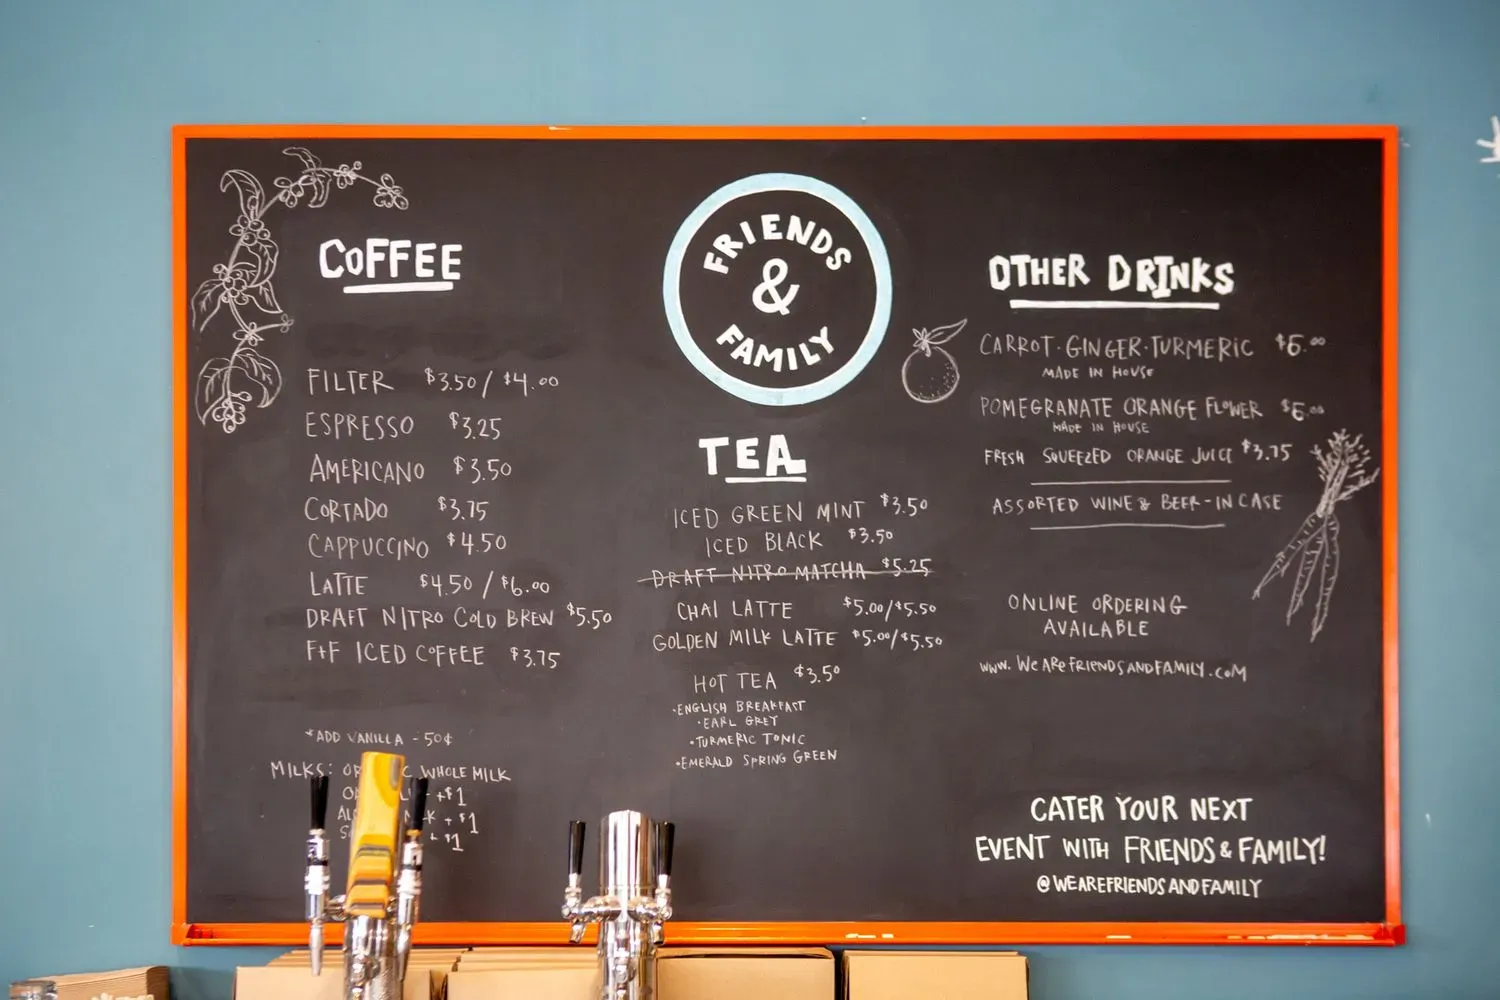 COFFEE
FILTER $3.50 / $4.00
ESPRESSO $3.25
AMERICANO $3.50
CORTADO $3.75
CAPPUCCINO $4.50
LATTE $4.50 / $6.00
DRAFT NITRO COLD BREW $5.50
F+F ICED COFFEE $3.75
*ADD VANILLA - 50¢
MILKS: WHOLE MILK
+$1
+ $1
+ $1
FRIENDS
&
FAMILY
TEA
ICED GREEN MINT $3.50
ICED BLACK $3.50
DRAFT NITRO MATCHA $5.25
CHAI LATTE $5.00/$5.50
GOLDEN MILK LATTE $5.00/$5.50
HOT TEA $3.50
•ENGLISH BREAKFAST
•EARL GREY
•TURMERIC TONIC
•EMERALD SPRING GREEN
OTHER DRINKS
CARROT·GINGER·TURMERIC $6.00
MADE IN HOUSE
POMEGRANATE ORANGE FLOWER $6.00
MADE IN HOUSE
FRESH SQUEEZED ORANGE JUICE $3.75
ASSORTED WINE & BEER-IN CASE
ONLINE ORDERING
AVAILABLE
WWW.WEAREFRIENDSANDFAMILY.COM
CATER YOUR NEXT
EVENT WITH FRIENDS & FAMILY!
@WEAREFRIENDSANDFAMILY